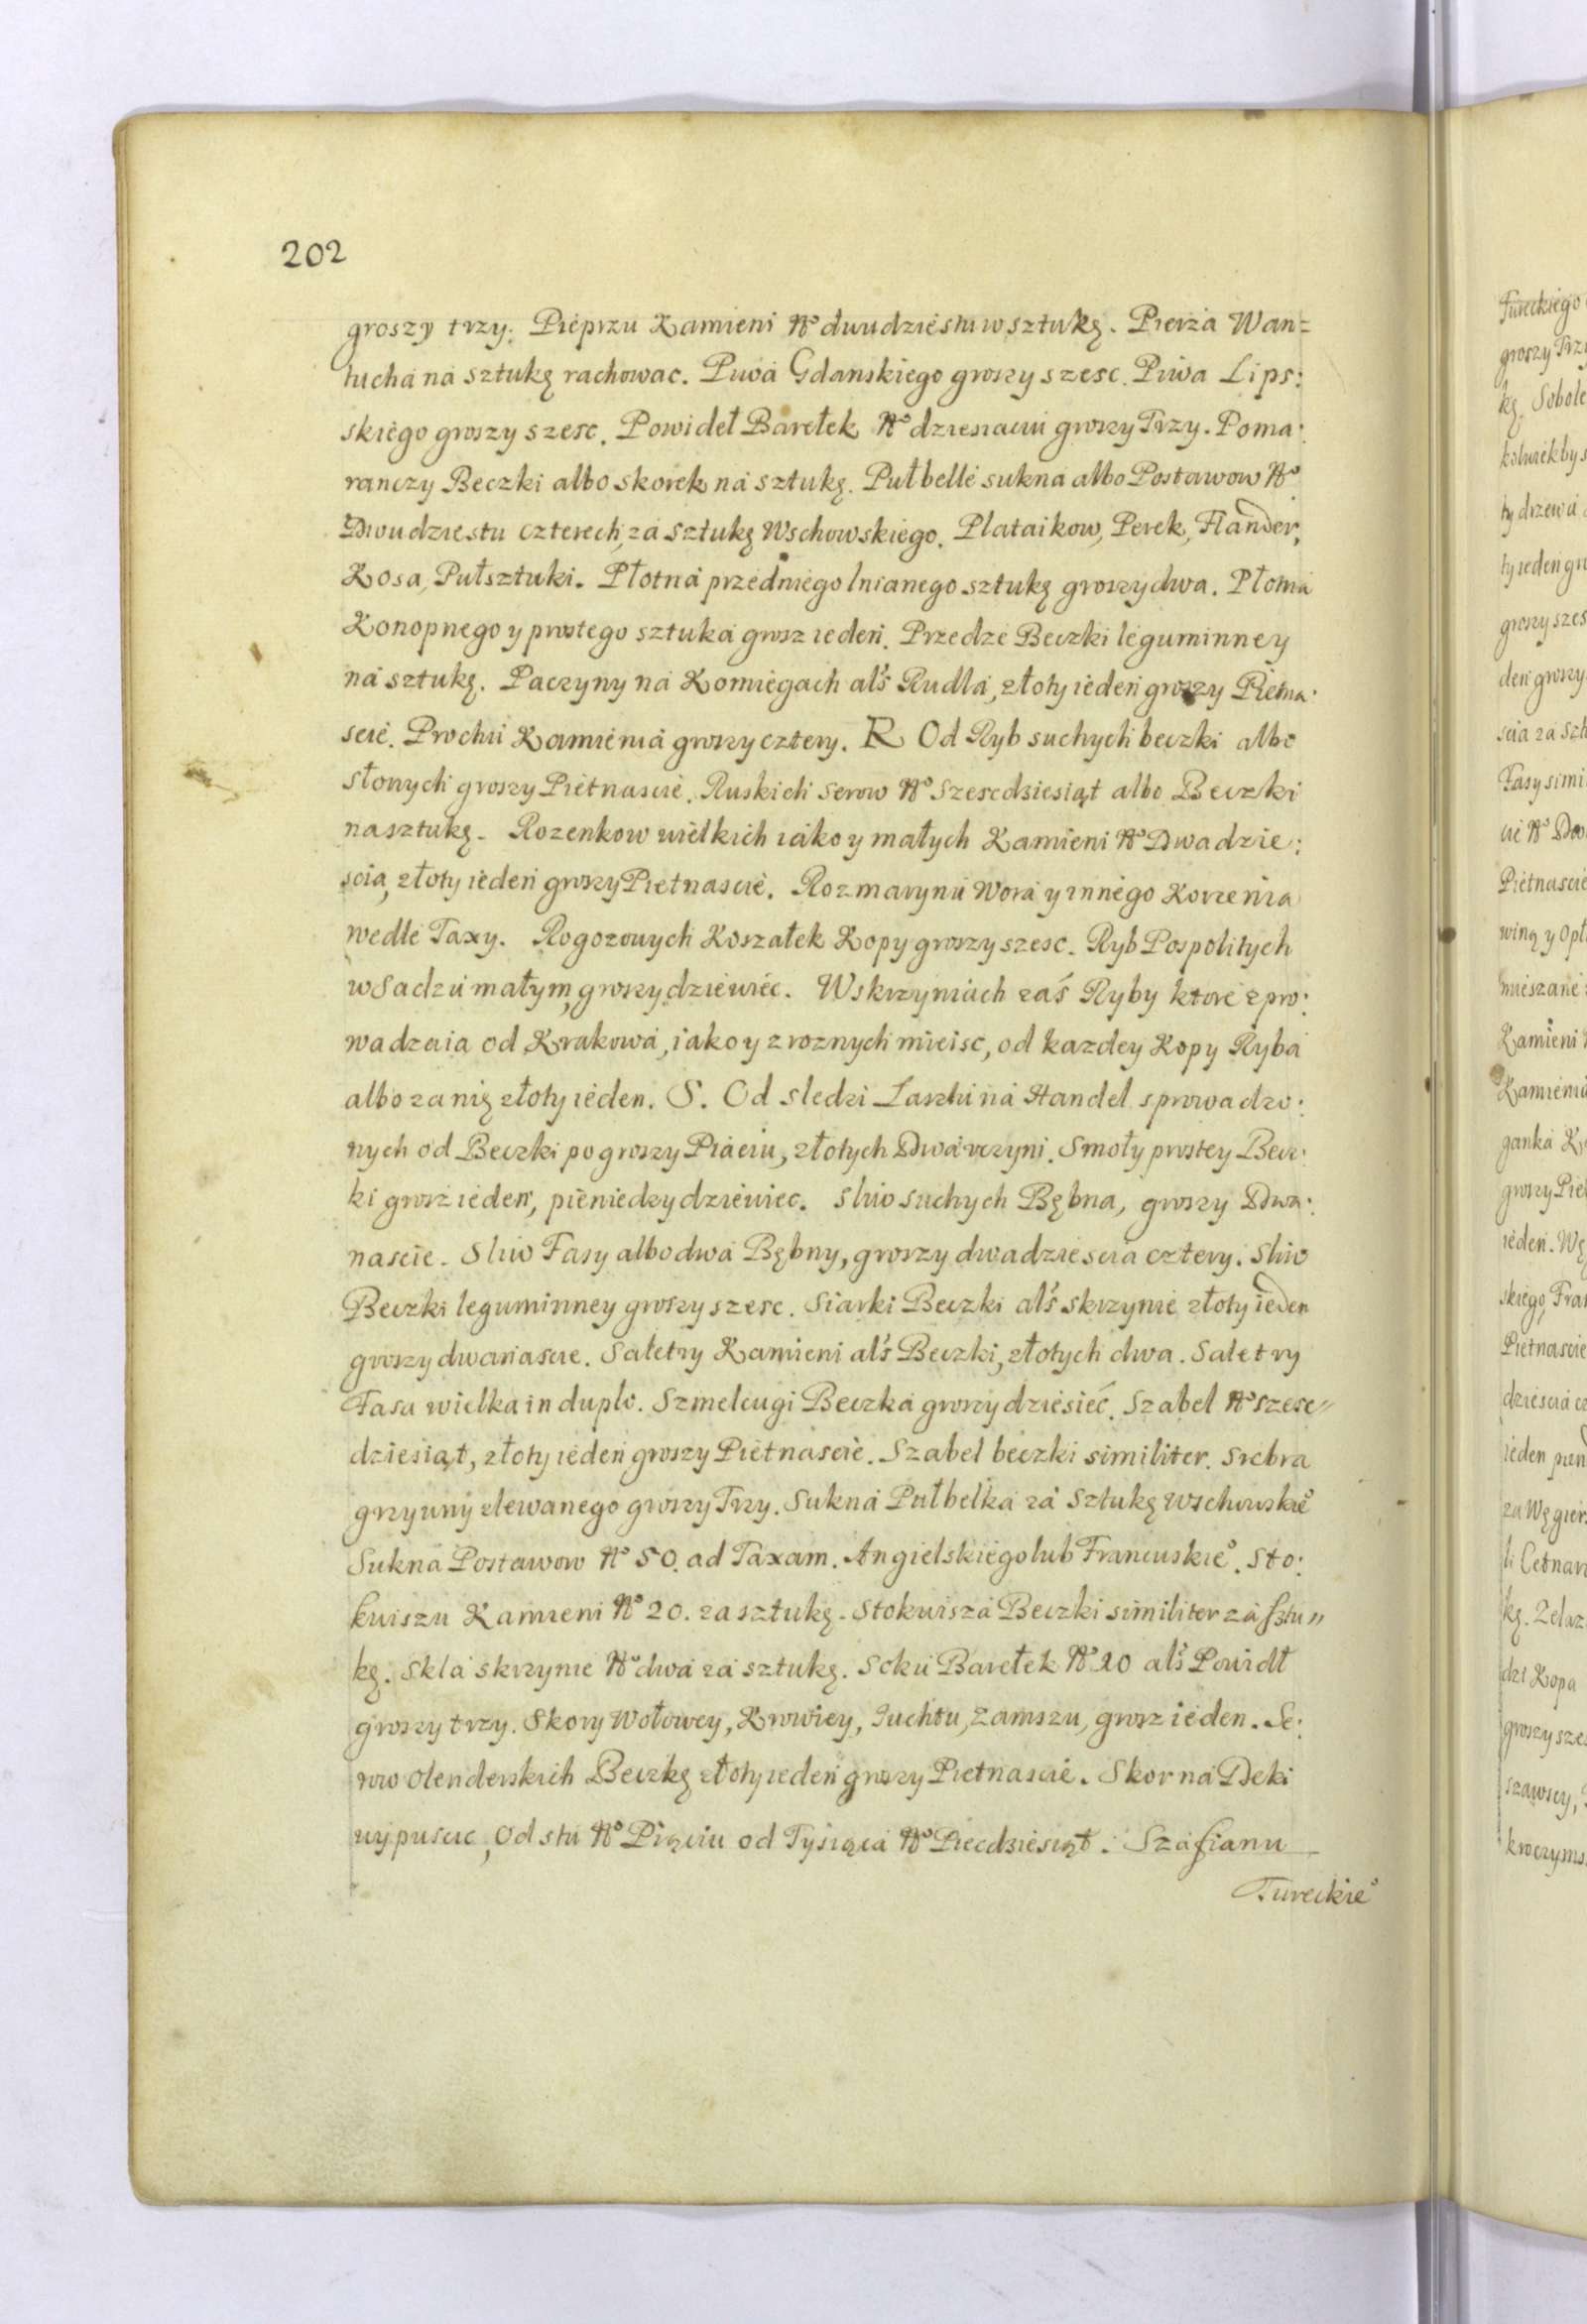 202
groszy trzy. Pieprzu Kamieni No dwudziestu w sztukę. Pierza Wan=
tucha na sztukę rachowac. Piwa Gdanskiego groszy szesc. Piwa Lips:
skiego groszy szesc. Powideł Barełek No dziesiaciu groszy Trzy. Poma:
ranczy Beczki albo skorek na sztukę. Pułbelle sukna albo Postawow No
Dwudziestu czterech, za sztukę Wschowskiego. Plataikow, Perek, Flander,
Kosa, Pułsztuki. Płotna przedniego lnianego sztukę groszy dwa. Płotna
Konopnego y prostego sztuka grosz ieden. Przedze Beczki leguminney
na sztukę. Paczyny na Komiegach als Rudla, złoty ieden groszy Pietna:
scie. Prochu Kamienia groszy cztery. R Od Ryb suchych beczki albo
słonych groszy Pietnascie. Ruskich serow No Szescdziesiąt albo Beczki
na sztukę. Rozenkow wielkich iako y małych Kamieni No Dwadzie:
scia, złoty ieden groszy Pietnascie. Rozmarynu Wora y innego Korzenia
wedle Taxy. Rogozowych Koszałek Kopy groszy szesc. Ryb Pospolitych
w Sadzu małym, groszy dziewiec. W skrzyniach zaś Ryby ktore zpro:
wadzaia od Krakowa, iako y z roznych mieisc, od kazdey Kopy Ryba
albo za nię złoty ieden. S. Od sledzi Laszki na Handel sprowadzo:
nych od Beczki po groszy Piaciu, złotych Dwa vczyni. Smoły prostey Becz:
ki grosz ieden, pieniedzy dziewiec. Sliw suchych Bębna, groszy Dwa:
nascie. Sliw Fasy albo dwa Bębny, groszy dwadziescia cztery. Sliw
Beczki leguminney groszy szesc. Siarki Beczki als skrzynie złoty ieden
groszy dwanascie. Saletry Kamieni als Beczki, złotych dwa. Saletry
Fasa wielka in duplo. Szmelcugi Beczka groszy dziesieć. Szabel No szesc„
dziesiąt, złoty ieden groszy Pietnascie. Szabel beczki similiter. Srebra
grzywny zlewanego groszy Trzy. Sukna Pułbelka za Sztukę wschowskieo
Sukna Postawow No 50. ad Taxam. Angielskiego lub Francuskieo. Sto:
kwiszu Kamieni No 20. za sztukę. Stokwisza Beczki similiter za sztu„
kę. Skla skrzynie No dwa za sztukę. Soku Barełek No 20 als Powidł
groszy trzy. Skory Wołowey, Krowiey, Juchtu, Zamszu, grosz ieden. Se:
row Olenderskich Beczkę złoty ieden groszy Pietnascie. Skor na Deki
wypuscic, Od stu No Pięciu od Tysiąca No Piecdziesiąt. Szafianu
Tureckieo